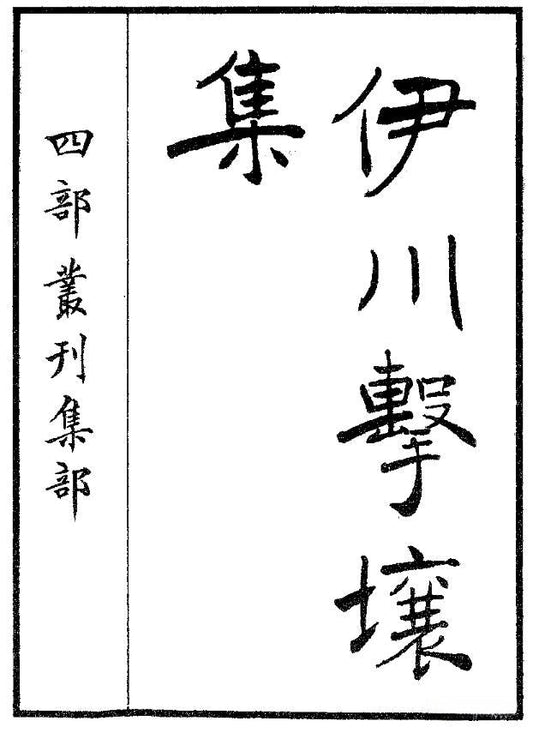 伊川擊壤
集
四部叢刊集部